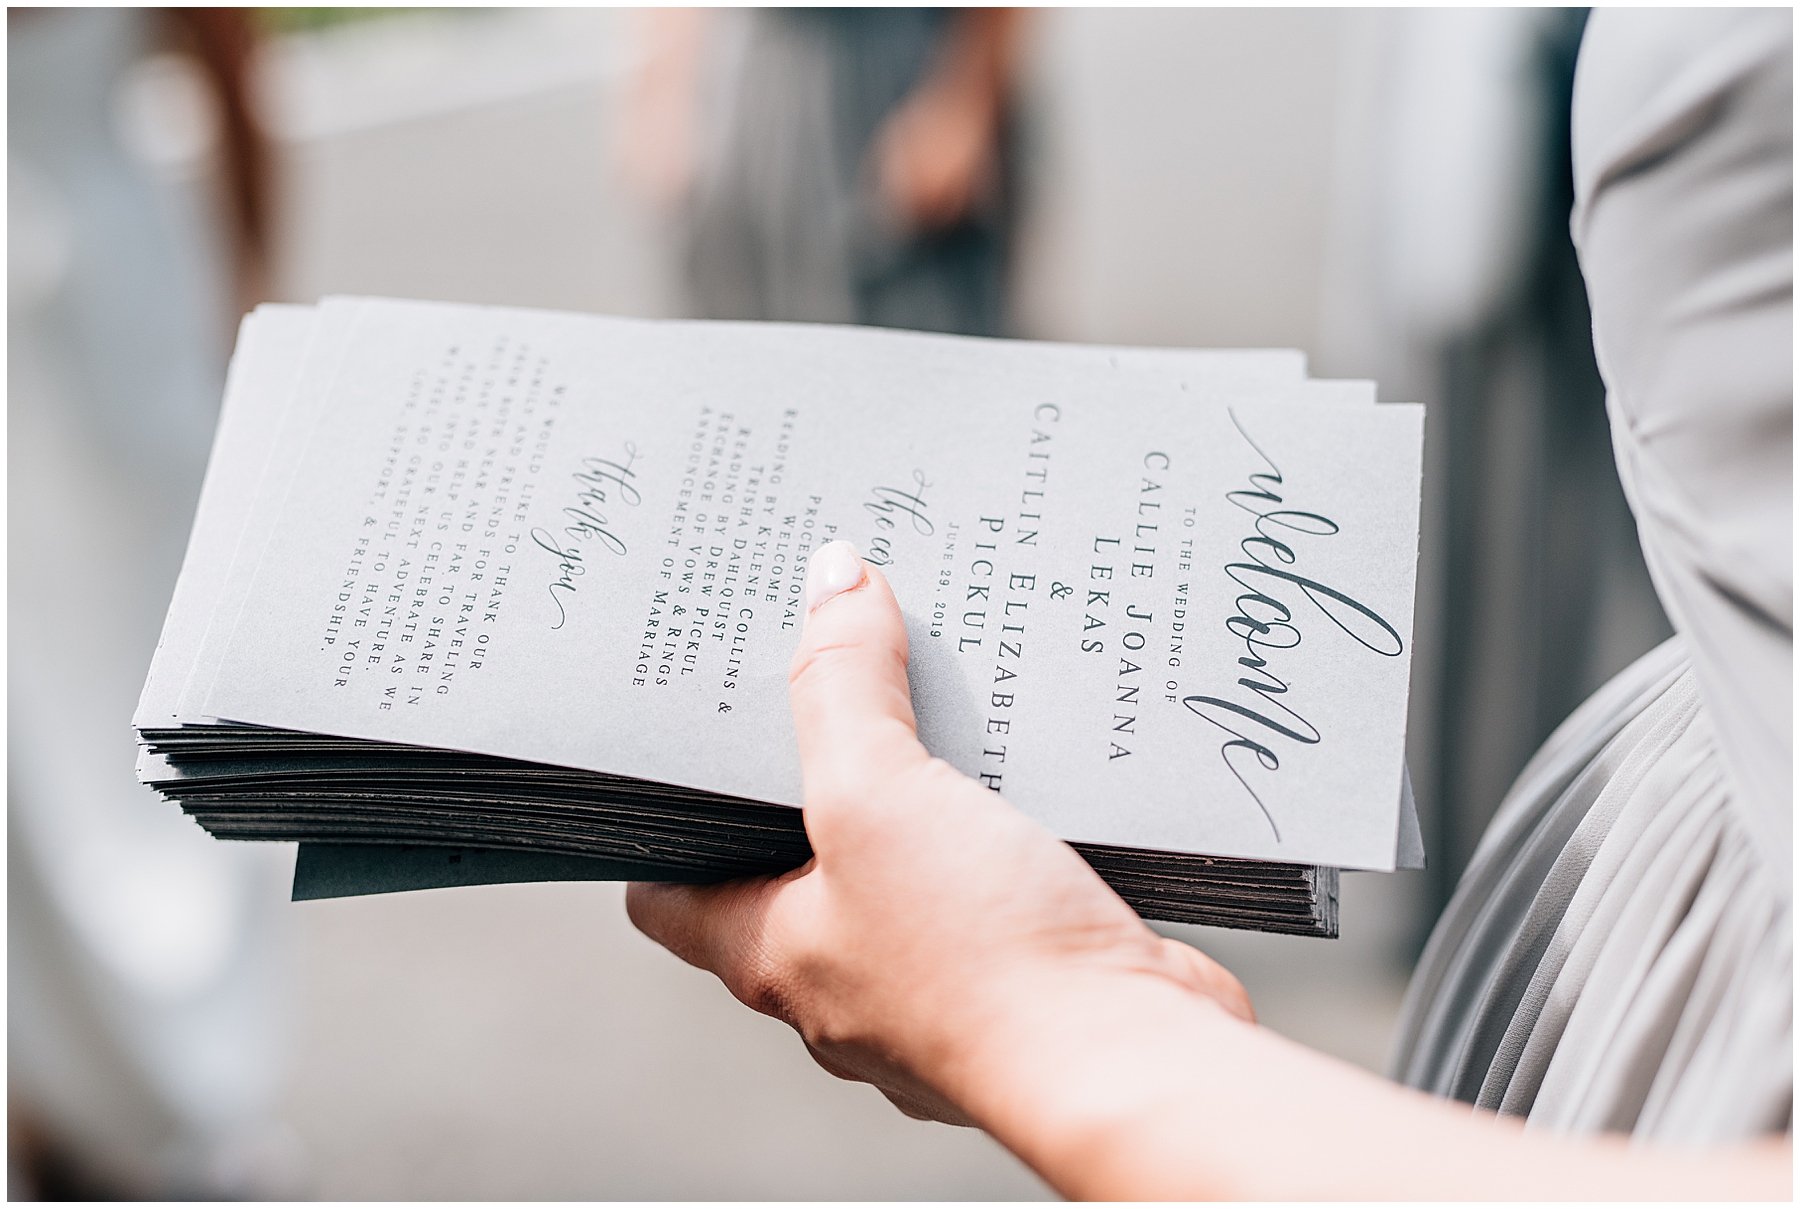 welcome
TO THE WEDDING OF
CALLIE JOANNA
LEKAS
&
CAITLIN ELIZABETH
PICKUL
JUNE 29, 2019
the cer
PR
PROCESSIONAL
WELCOME
READING BY KYLENE
TRISHA DANE COLLINS &
READING BY DREW PICKUL
EXCHANGE OF VOWS & RINGS
ANNOUNCEMENT OF MARRIAGE
thank you
WE WOULD LIKE TO THANK OUR
FAMILY AND FRIENDS FOR TRAVELING
FROM BOTH NEAR AND FAR TO SHARE IN
THIS DAY AND HELP US CELEBRATE AS WE
HEAD INTO OUR NEXT ADVENTURE.
WE FEEL SO GRATEFUL TO HAVE YOUR
LOVE, SUPPORT, & FRIENDSHIP.